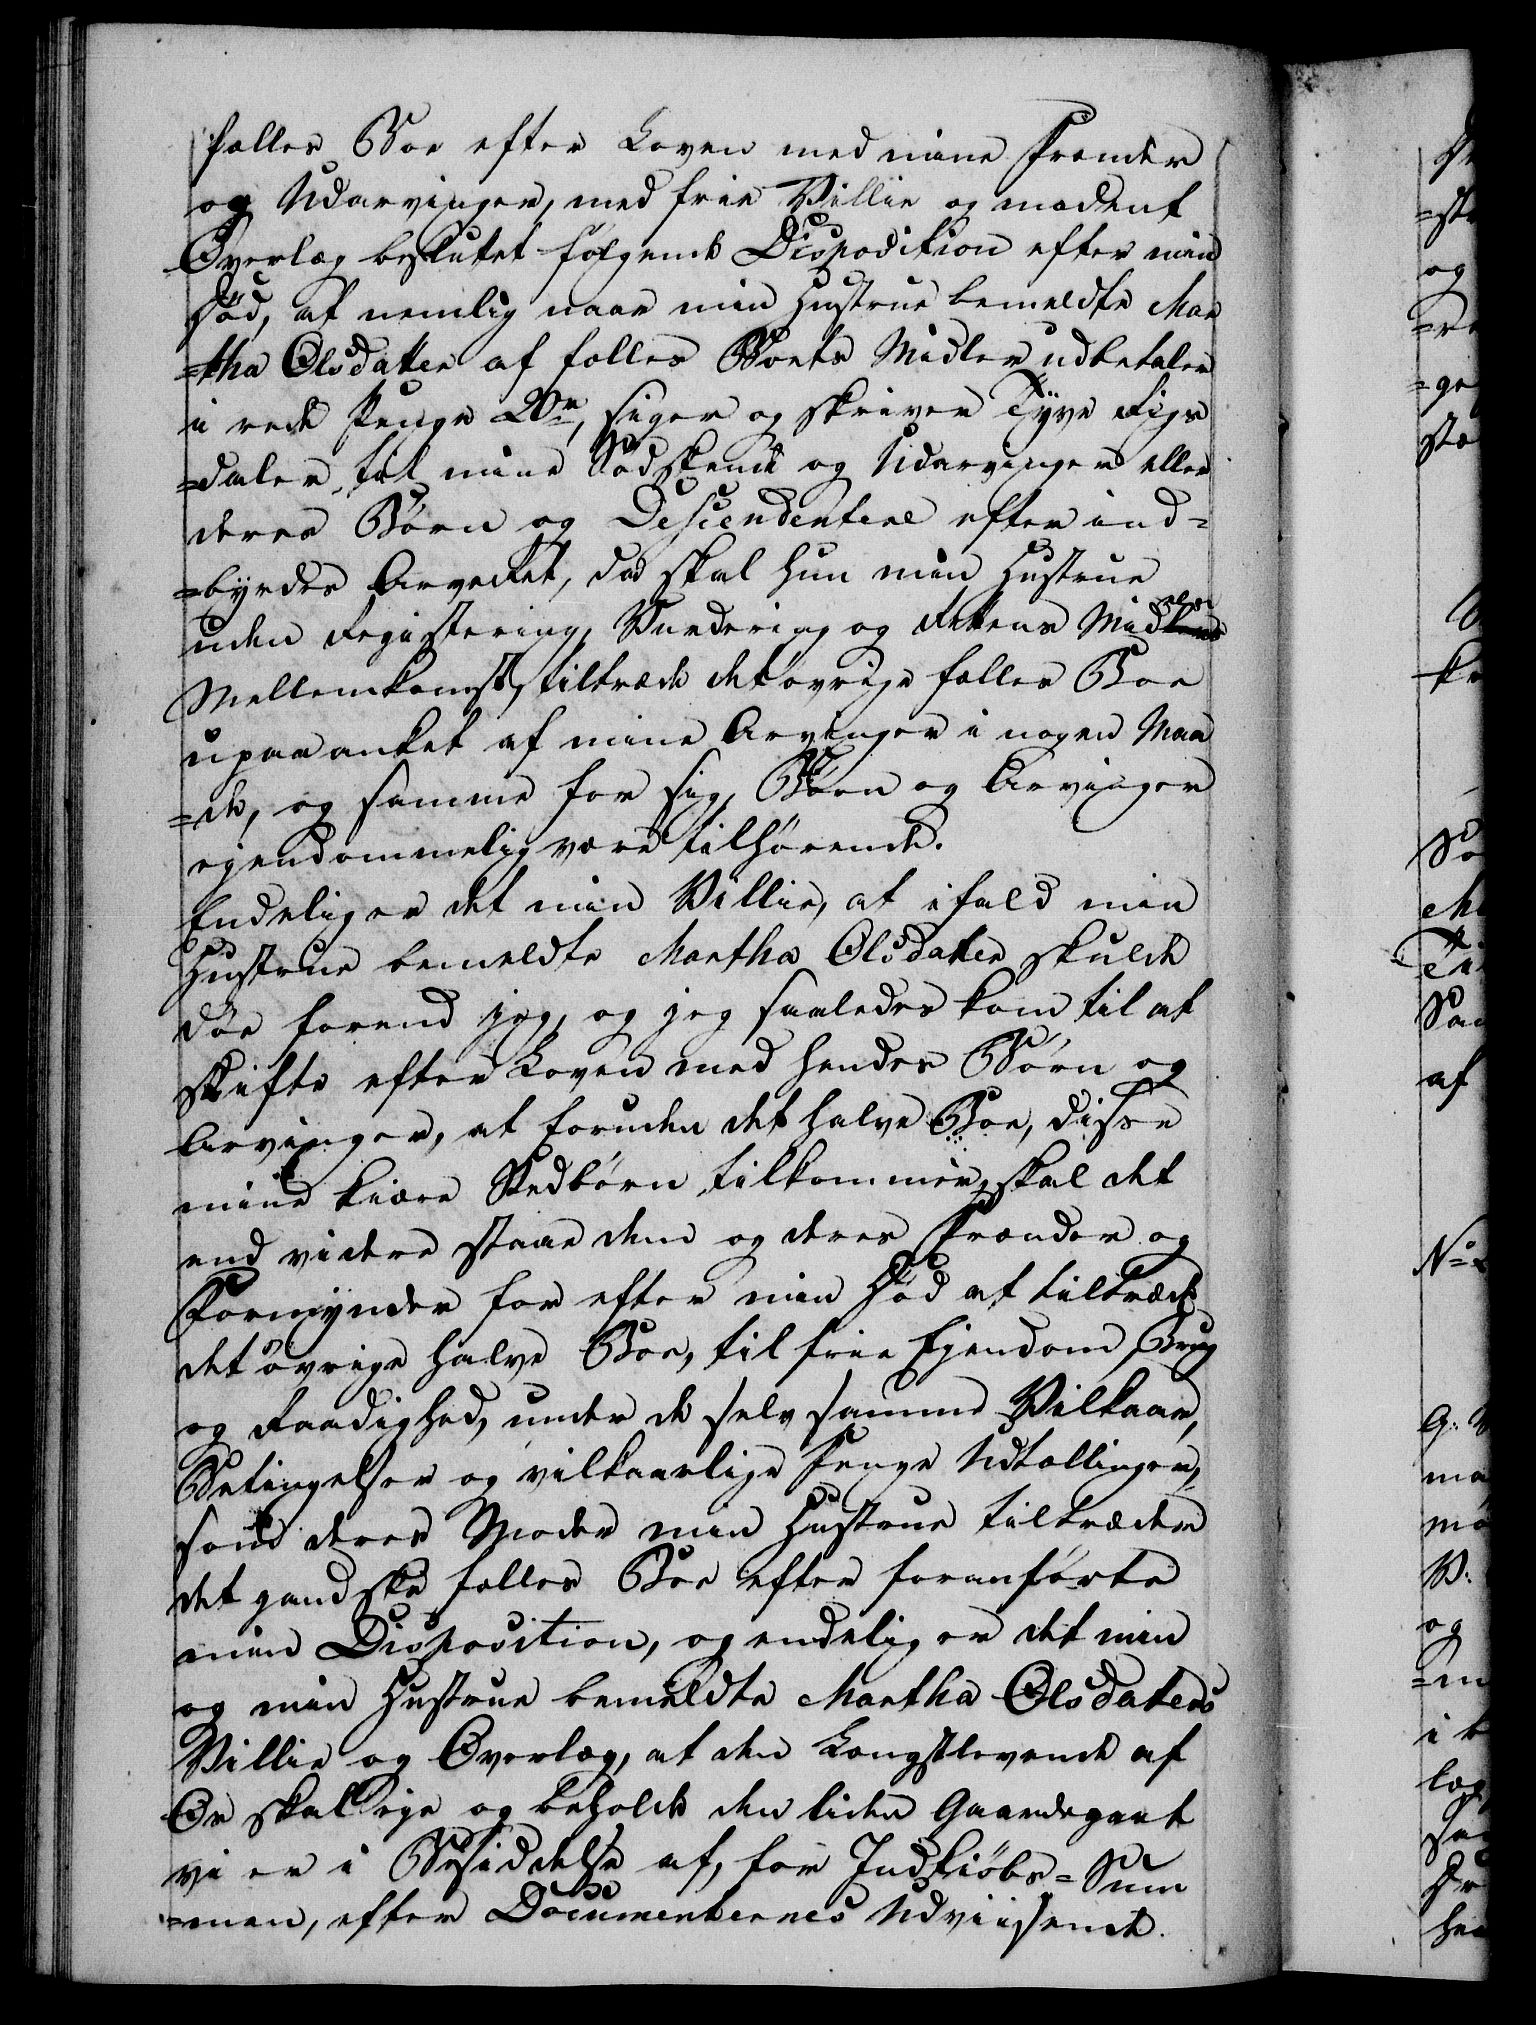 fælles Boe efter Loven med mine Frænder
og Udarvinger, med frie Villie og modent
Overlæg besluttet følgende Disposition efter min
Død, at nemlig naar min Hustrue bemeldte Mar
=tha Olsdatter af fælles Boets Midler udbetaler
i rede Penge 20 rd, siger og skriver Tyve Rigs
=daler, til mine Sødskende og Udarvinger eller
deres Børn og Descendentere efter ind=
=byrdes Arveret, da skal hun min Hustrue
uden Registering, Vurdering og Rettens Mid
Mellemkomst, tiltræde det øvrige fælles Boe
upaaanket af mine Arvinger i nogen Maa
=de, og samme for sig, Børn og Arvinger
ejendommelig være tilhørende.
Endelig er det min Villie, at ifald min
Hustrue bemeldte Martha Olsdatter skulde
døe forend jeg, og jeg saaledes kom til at
skifte efter Loven med hendes Børn og
Arvinger, at foruden det halve Boe, disse
mine kiære Stedbørn tilkommer, skal det
end videre staae dem og deres Frænder og
Formynder for efter min Død at tiltræde
det øvrige halve Boe, til frie Ejendom, Brug
og Raadighed, under de selv samme Vilkaar,
Betingelser og vilkaarlige Penge Udtællinger,
som deres Moder min Hustrue tiltræder
det gandske fælles Boe efter foranførte
min Disposition, og endelig er det min
og min Hustrue bemeldte Martha Olsdatters
Villie og Overlæg, at den Længstlevende af
Os skal eje og beholde den liden Gaardepart
vi er i Besiddelse af, for Indkiøbs=Sum
=men, efter Documenternes Udviisende.